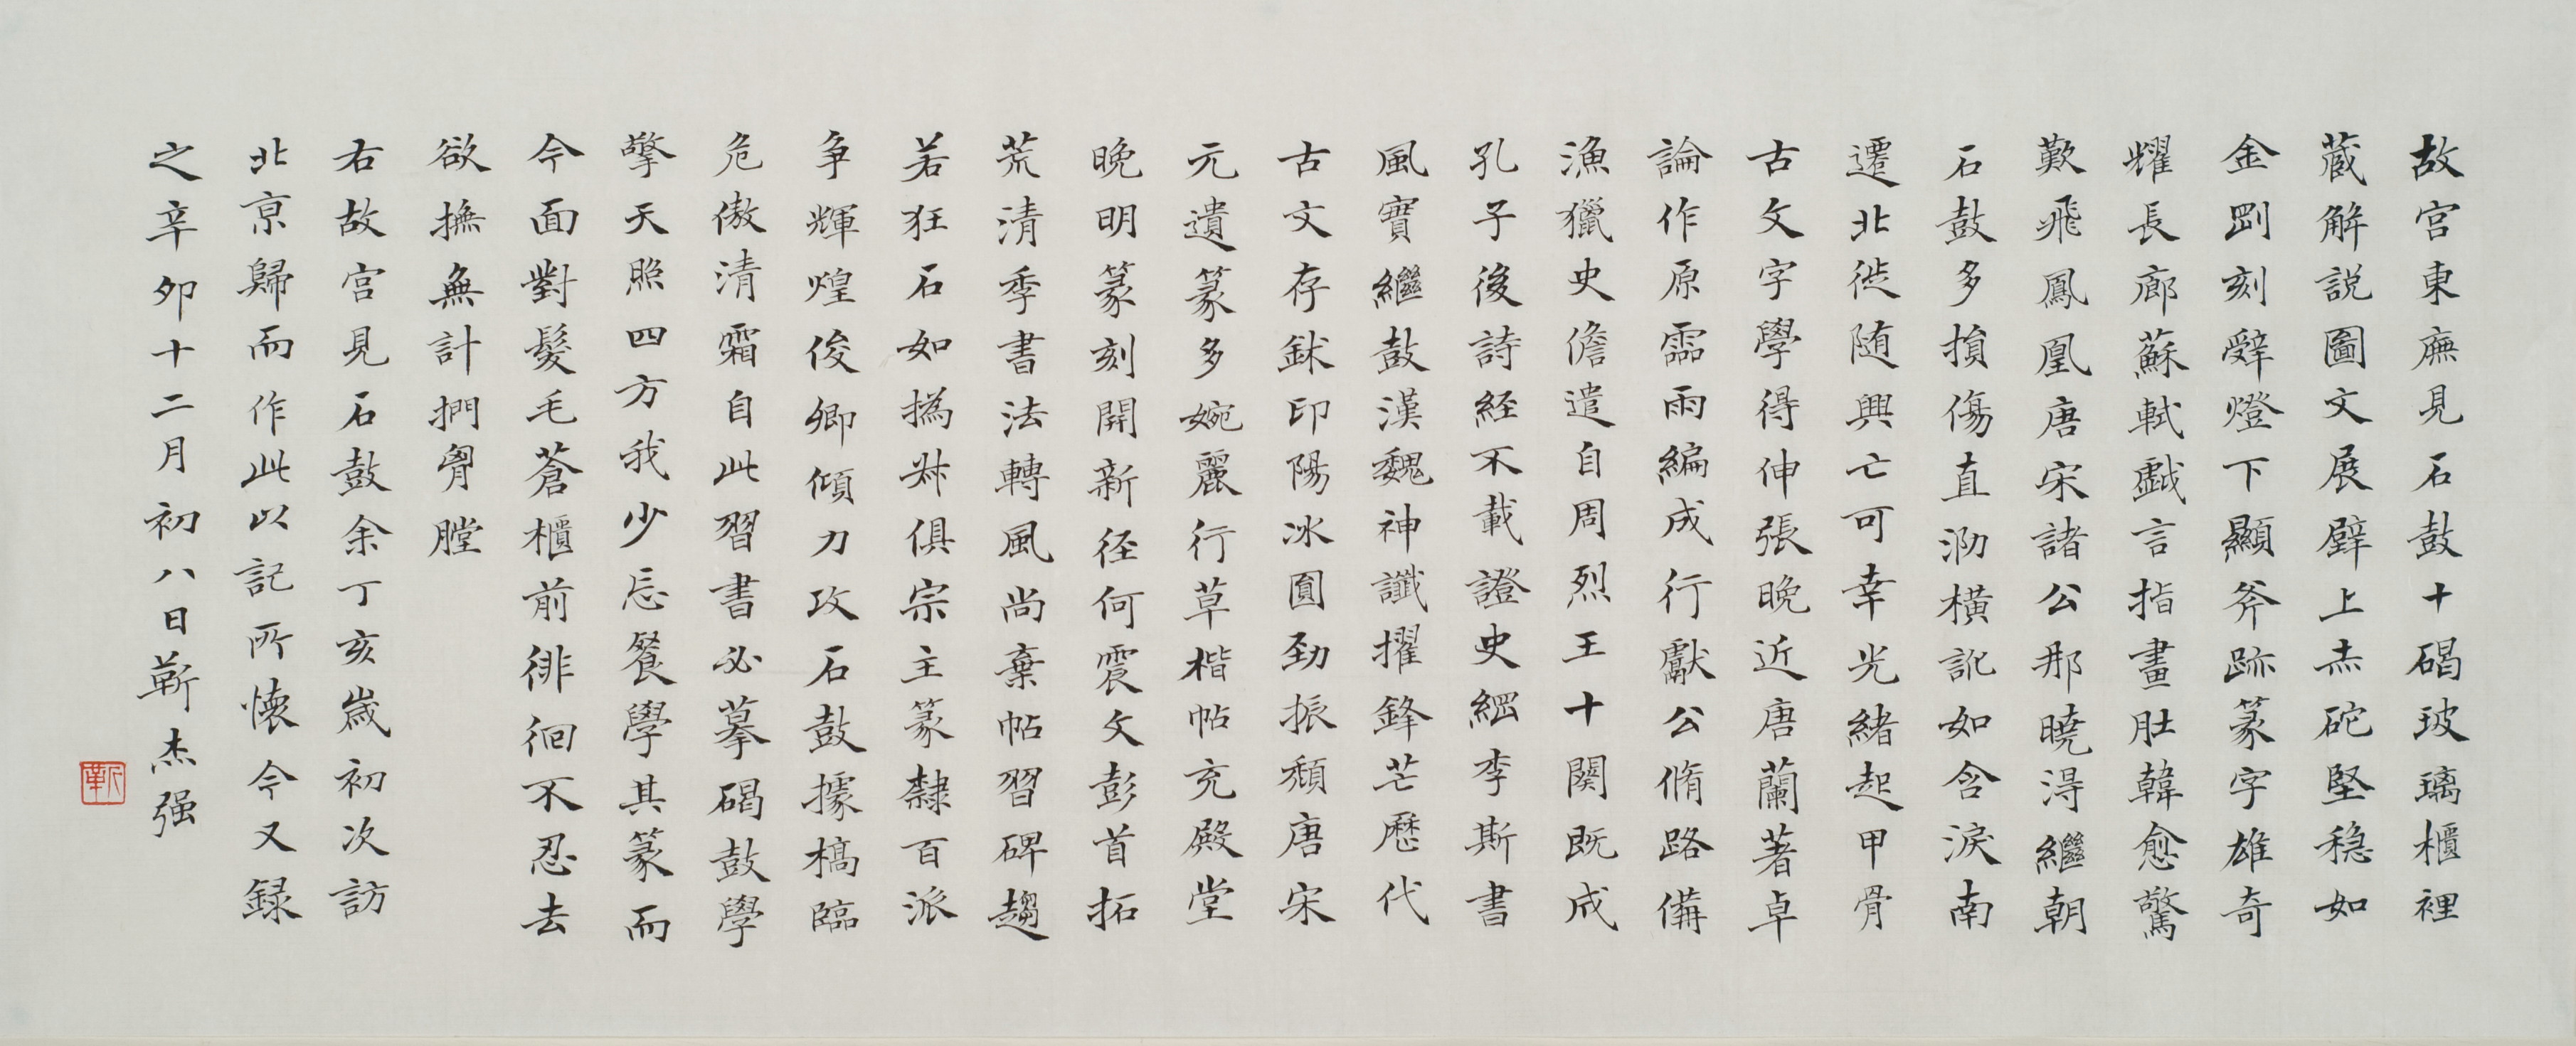 故宫東廡見石鼓十碣玻璃櫃裡
蔵解説圖文展壁上赤砣堅稳如
金剛刻辤燈下顯斧跡篆字雄奇
耀長廊蘇軾戲言指畫肚韓愈驚
歎飛鳳凰唐宋諸公那曉淂繼朝
石鼓多損傷直泐横訛如含淚南
遷北徙随興亡可幸光緒起甲骨
古文字學得伸張晚近唐蘭著卓
論作原霝雨編成行獻公脩路備
漁獵史儋遣自周烈王十闋既成
孔子後詩経不載證史綱李斯書
風寶繼鼓漢魏神讖擢鋒芒歷代
古文存鉥印陽冰圓劲振頹唐宋
元遺篆多婉麗行草楷帖充殿堂
晚明篆刻開新径何震文彭首拓
荒清季書法轉風尚棄帖習碑趨
若狂石如撝叔俱宗主篆隸百派
争輝煌俊卿傾力攻石鼓據槁臨
危傲清霜自此習書必摹碣鼓學
擎天照四方我少忘餐學其篆而
今面對髮毛蒼櫃前徘徊不忍去
欲撫無計捫胷膛
右故宫見石鼓余丁亥歲初次訪
北京歸而作此以記所懷今又録
之辛卯十二月初八日靳杰强
靳